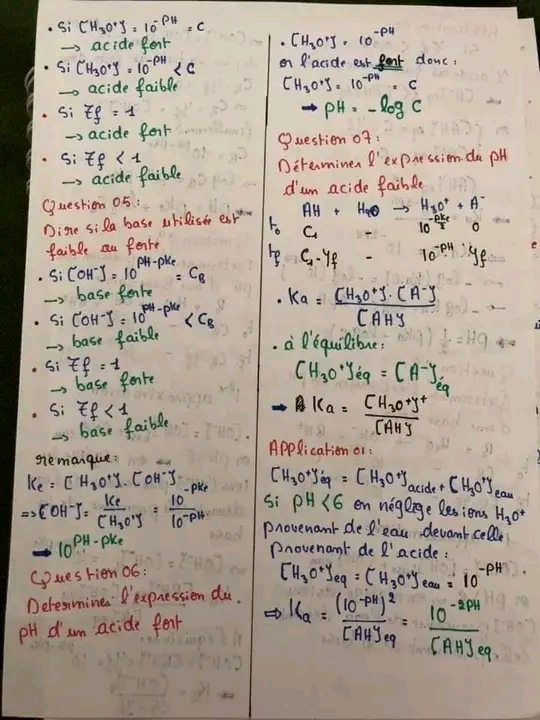 . Si [H3O+] = 10^-PH = C
→ acide fort
. Si [H3O+] = 10^-PH < C
→ acide faible
. Si Zf = 1
→ acide fort
. Si Zf < 1
→ acide faible
Question 05:
Dire si la base utilisée est
faible ou forte
. Si [OH-] = 10^PH-pKe = CB
→ base forte
. Si [OH-] = 10^PH-pKe < CB
→ base faible
. Si Zf = 1
→ base forte
. Si Zf < 1
→ base faible
remarique:
Ke = [H3O+]. [OH-]
=> [OH-] = Ke / [H3O+] = 10^-PKe / 10^-PH
→ 10^PH-pKe
Question 06:
Determiner l'expression du
pH d'un acide fort
. [H3O+] = 10^-PH
or l'acide est fort donc:
[H3O+] = 10^-PH = C
→ PH = -log C
Question 07:
Déterminer l'expression du pH
d'un acide faible
AH + H2O → H3O+ + A-
t0 C1 - 10^-pKe/2 0
tf C1-yf - 10^-PH yf
. Ka = [H3O+].[A-] / [AH]
. à l'équilibre:
[H3O+]éq = [A-]éq
→ Ka = [H3O+]+ / [AH]
APPlication 01:
[H3O+]éq = [H3O+]acide + [H3O+]eau
Si PH<6 on néglige les ions H3O+
provenant de l'eau devant celle
provenant de l'acide:
[H3O+]eq = [H3O+]eau = 10^-PH
=> Ka = (10^-PH)^2 / [AH]eq = 10^-2PH / [AH]eq.